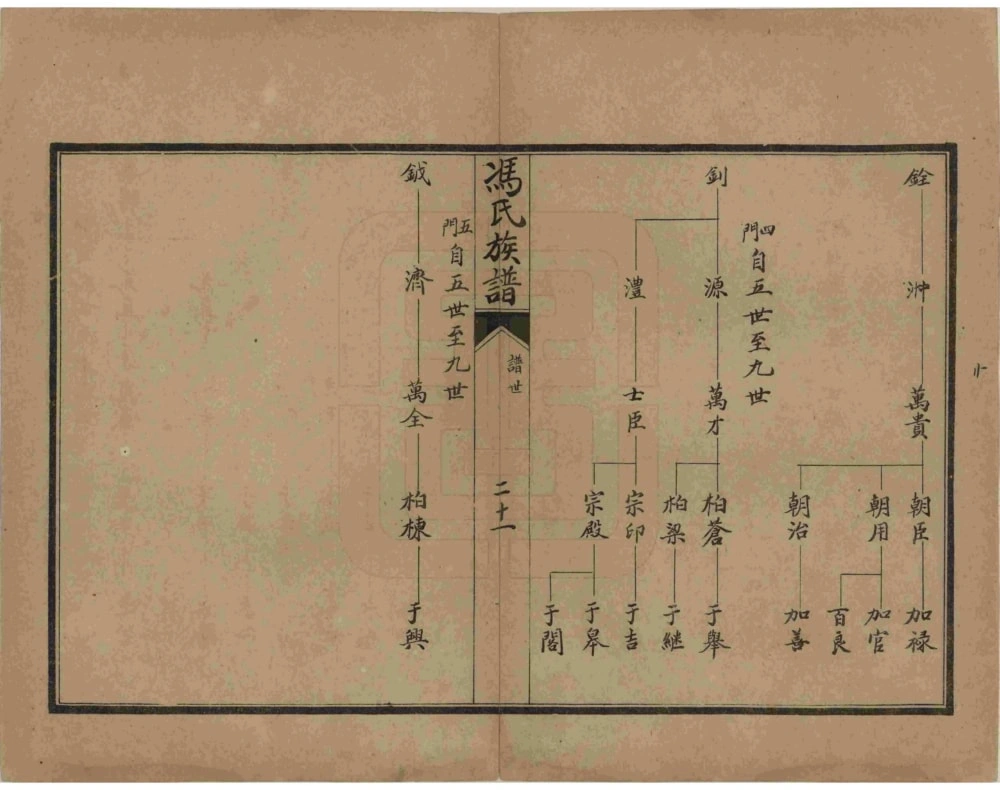 銓
泮
萬貴
朝臣
朝用
朝治
加禄
加官
百良
加善
四門
自五世至九世
釗
源
澧
萬才
士臣
柏蒼
柏梁
宗印
宗殿
于舉
于繼
于吉
于皋
于閣
馮氏族譜
譜世
二十一
五門
自五世至九世
鉞
濟
萬全
柏棟
于興